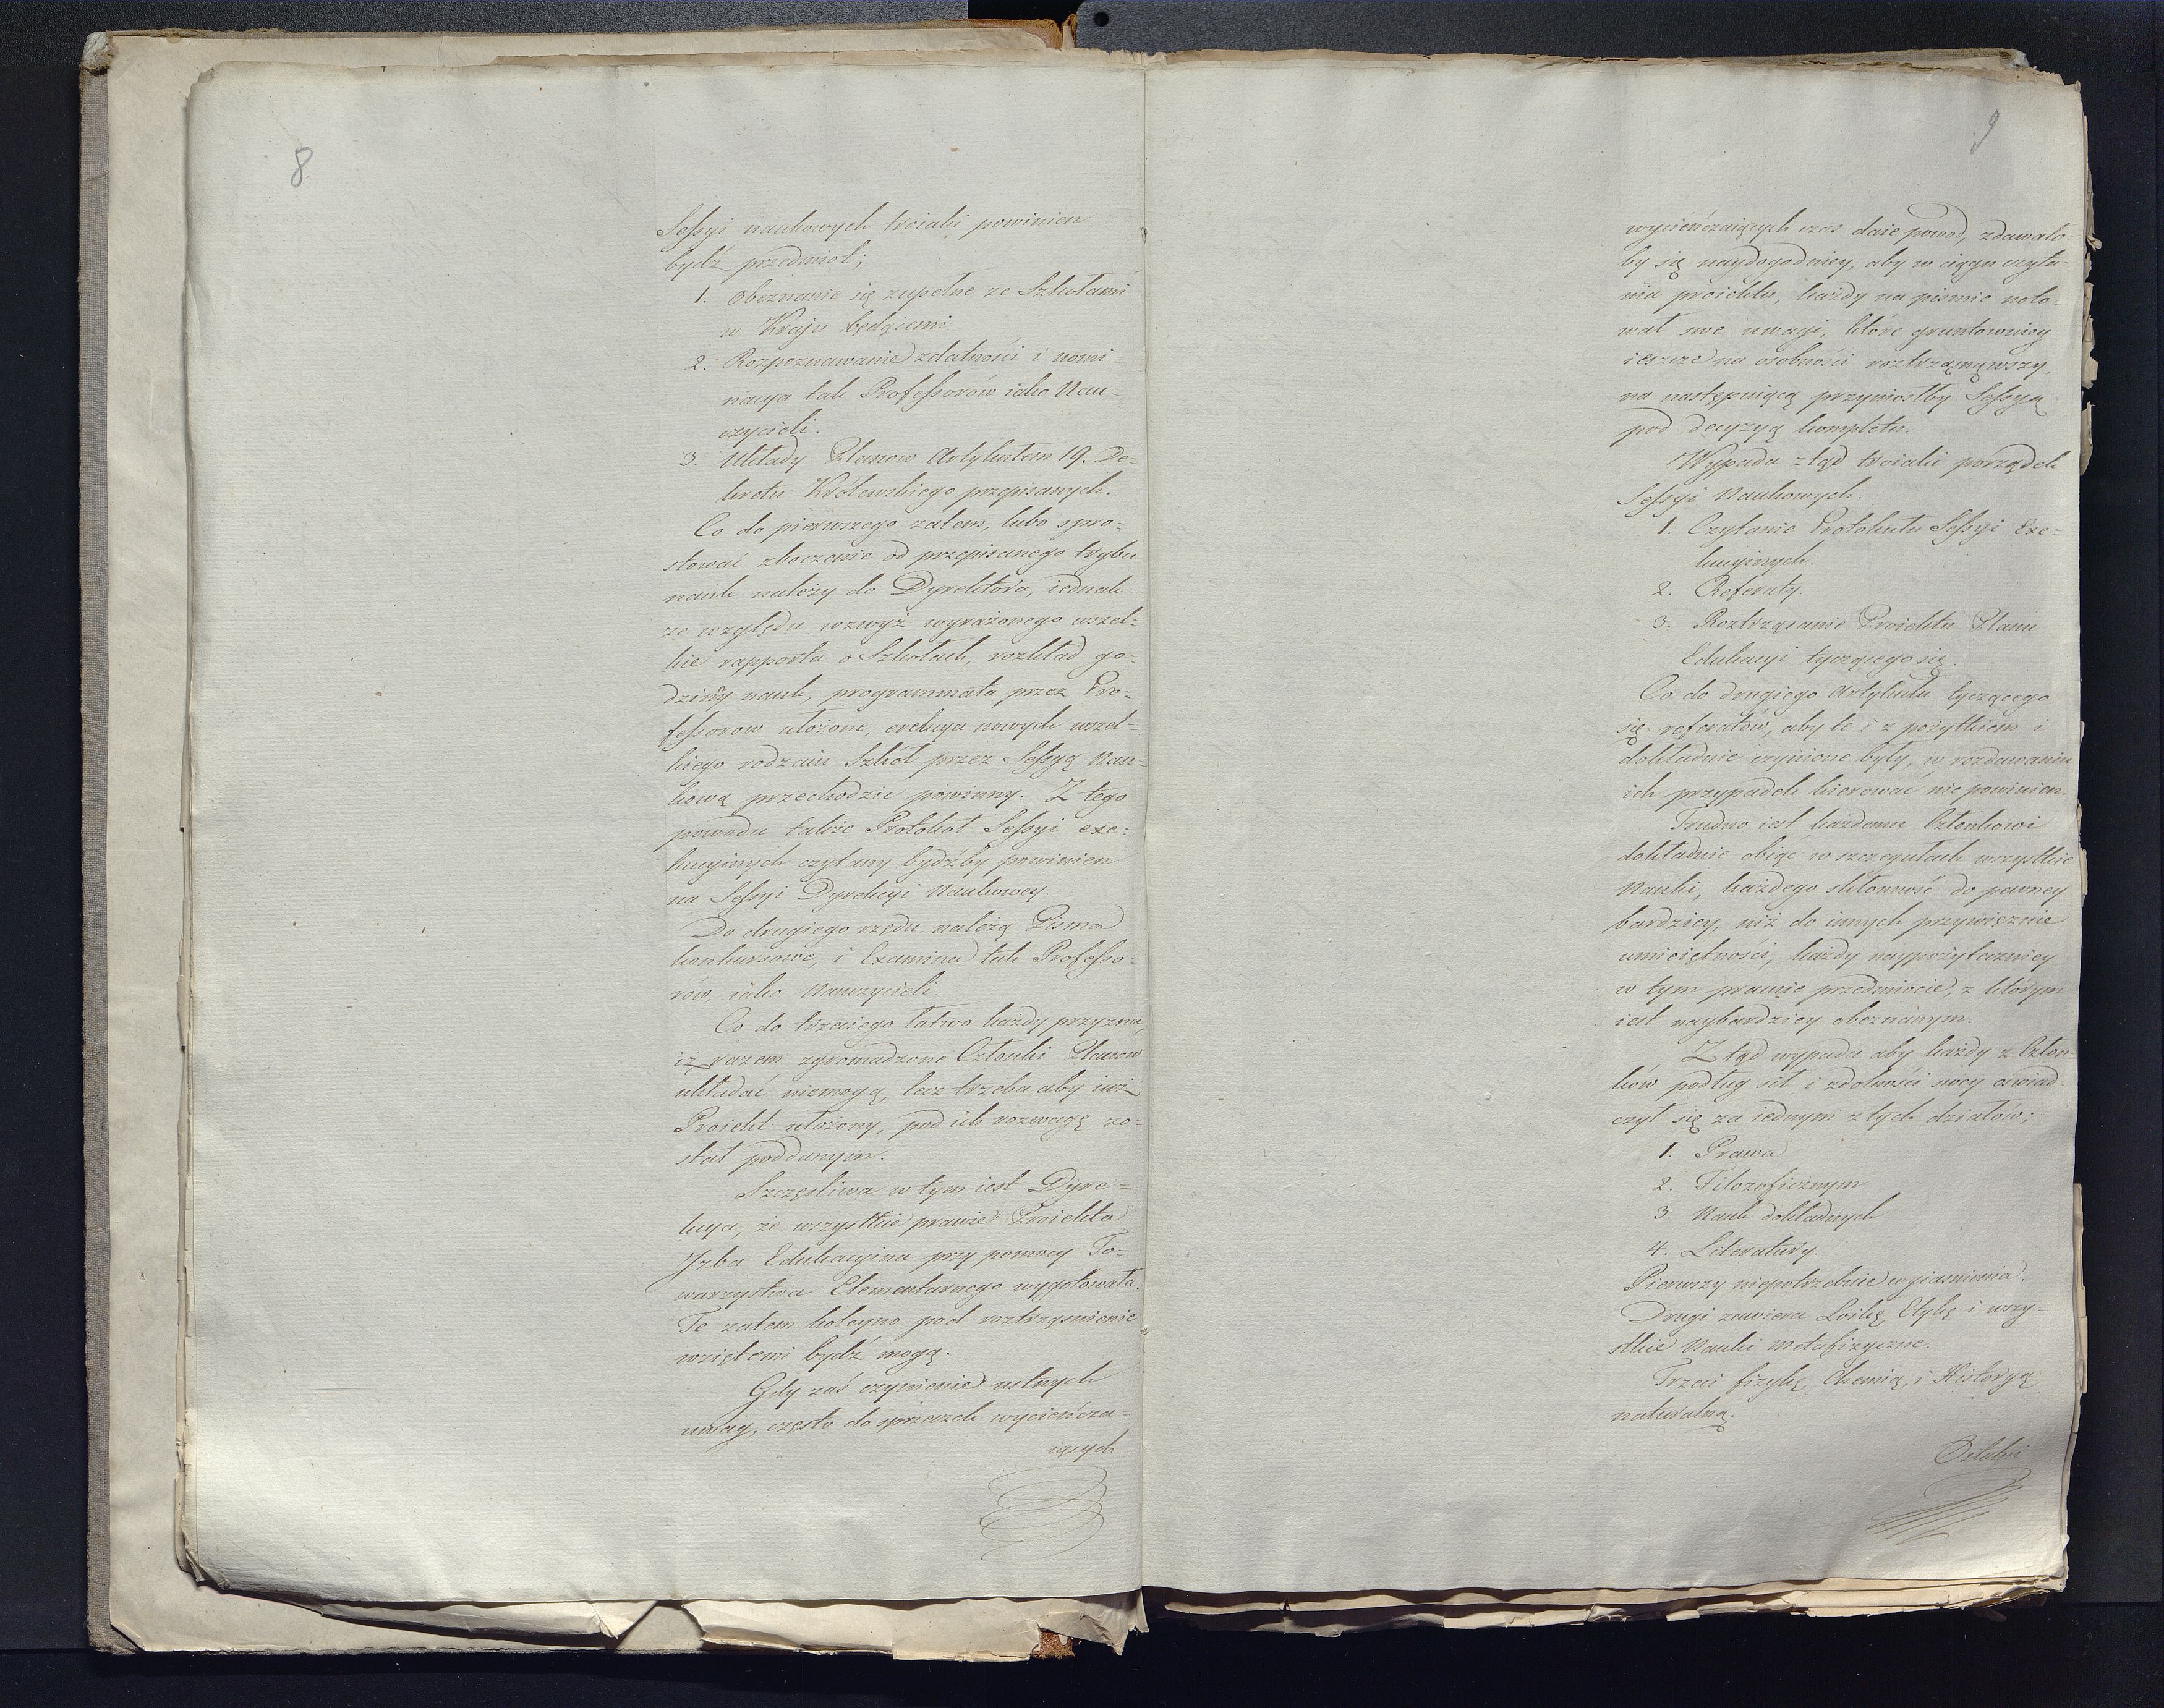 8.
Sessyi naukowych troiaki powinien
bydź przedmiot;
1. Obeznanie się zupełne ze Szkołami
w Kraju będącemi.
2. Rozpoznawanie zdatności i nomi-
nacya tak Professorów iako Nau-
czycieli.
3. Układy Planow Artykułem 19. De-
kretu Królewskiego przepisanych.
Co do pierwszego zatem, lubo spro-
stować zboczenie od przepisanego trybu
nauk należy do Dyrektora, iednak
ze względu wzwyż wyrażonego wszel-
kie rapporta o Szkołach, rozkład go-
dziny nauk, programmata przez Pro-
fessorow ułożone, erekcya nowych wszel-
kiego rodzaiu Szkół przez Sessyą Nau-
kową przechodzić powinny. Z tego
powodu także Protokół Sessyi exe-
kucyinych czytany bydźby powinien
na Sessyi Dyrekcyi Naukowey.
Do drugiego rzędu należą Pisma
konkursowe, i Examina tak Professo-
rów, iako Nauczycieli.
Co do trzeciego łatwo każdy przyzna,
iż razem zgromadzone Członki Planow
układać niemogą, lecz trzeba aby iuż
Proiekt ułożony, pod ich rozwagę zo-
stał poddanym.
Szczęśliwa w tym iest Dyre-
kcya, że wszystkie prawie Proiekta
Izba Edukacyina przy pomocy To-
warzystwa Elementarnego wygotowała.
Te zatem koleyno pod roztrząśnienie
wziętemi bydź mogą.
Gdy zaś czynienie ustnych
uwag, często do sprzeczek wycieńcza-
iących
9
wycieńczaiących czas daie powod, zdawało-
by się naydogodniey, aby w ciągu czyta-
nia proiektu, każdy na pismie noto-
wał swe uwagi, które gruntowniey
ieszcze na osobności roztrząsnąwszy,
na następuiącą przyniosłby Sessyą
pod decyzyą kompletu.
Wypada ztąd troiaki porządek
Sessyi Naukowych.
1. Czytanie Protokułu Sessyi Exe-
kucyinych.
2. Referaty.
3. Roztrząsanie Proiektu Planu
Edukacyi tyczącego się.
Co do drugiego Artykułu tyczącego
się referatów, aby te i z pożytkiem i
dokładnie czynione były, w rozdawaniu
ich przypadek kierować nie powinien.
Trudno iest każdemu Członkowi
dokładnie obiąć w szczegułach wszystkie
Nauki, każdego skłonność do pewney
bardziey, niż do innych przywięznie
umieiętności, każdy naypożyteczniey
w tym pracuie przedmiocie, z którym
iest naybardziey obeznanym.
Ztąd wypada aby każdy z Człon-
ków podług sił i zdolności swey oświad-
czył się za iednym z tych działów;
1. Prawa
2. Filozoficznym
3. Nauk dokładnych
4. Literatury.
Pierwszy niepotrzebuie wyiaśnienia.
Drugi zawiera Loikę Etykę i wszy-
stkie Nauki metafizyczne.
Trzeci fizykę, Chemią, i Historyą
naturalną.
Ostatni